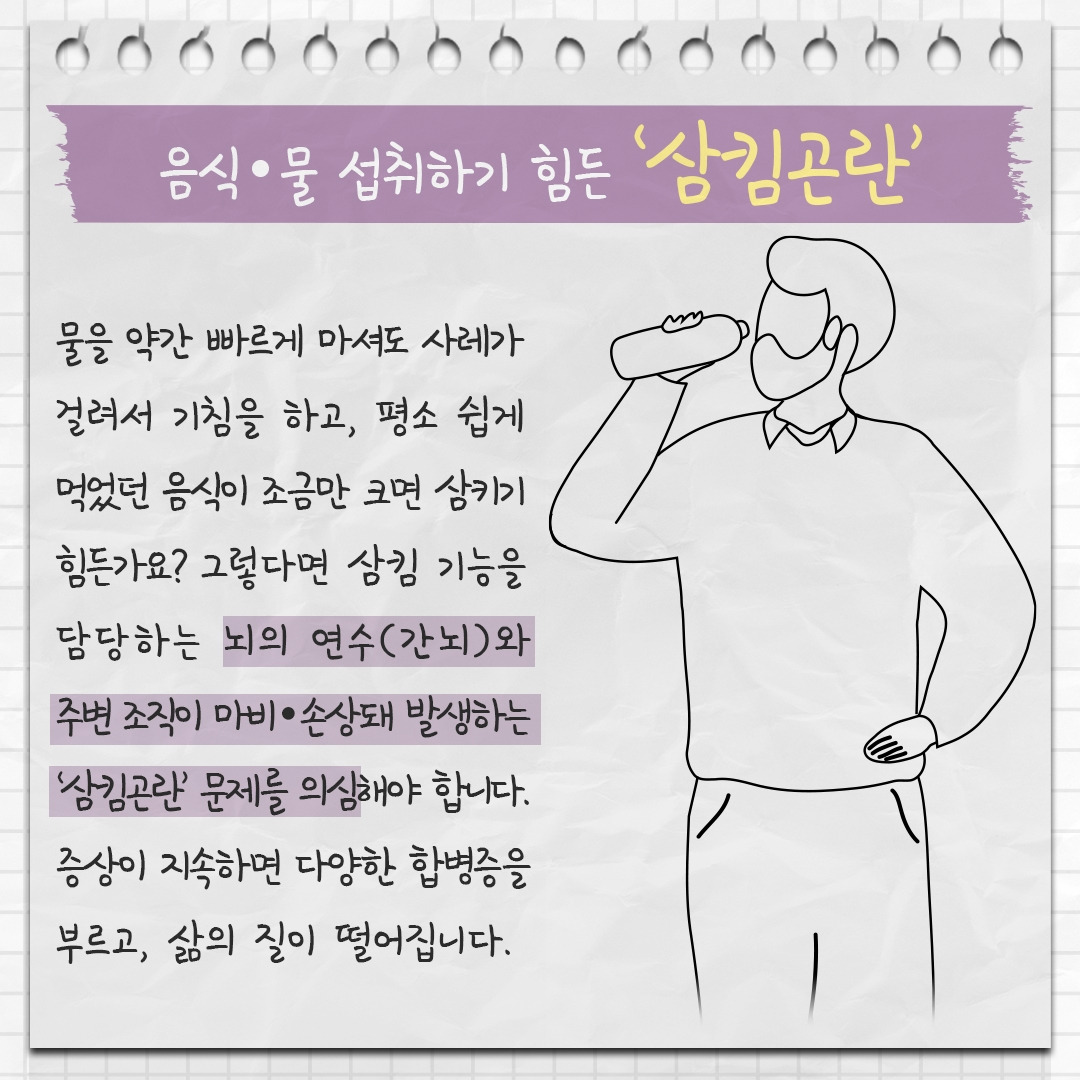 음식•물 섭취하기 힘든 ‘삼킴곤란’
물을 약간 빠르게 마셔도 사레가
걸려서 기침을 하고, 평소 쉽게
먹었던 음식이 조금만 크면 삼키기
힘든가요? 그렇다면 삼킴 기능을
담당하는 뇌의 연수(간뇌)와
주변 조직이 마비•손상돼 발생하는
‘삼킴곤란’ 문제를 의심해야 합니다.
증상이 지속하면 다양한 합병증을
부르고, 삶의 질이 떨어집니다.